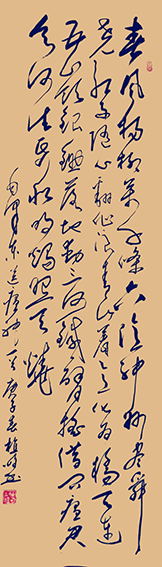 春風楊柳萬千條六億神州盡舜
堯紅雨隨心翻作浪青山着意化為橋天連
五岭銀鋤落地動三河鐵臂搖借問瘟君
欲何往紙船明燭照天燒
毛澤東送瘟神 庚子春